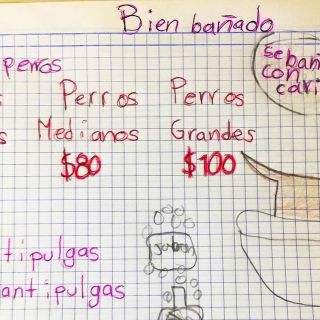 Bien bañado
perros
se bañ
con
cari
Perros Perros
Medianos Grandes
$80 $100
Jabón
tipulgas
antipulgas